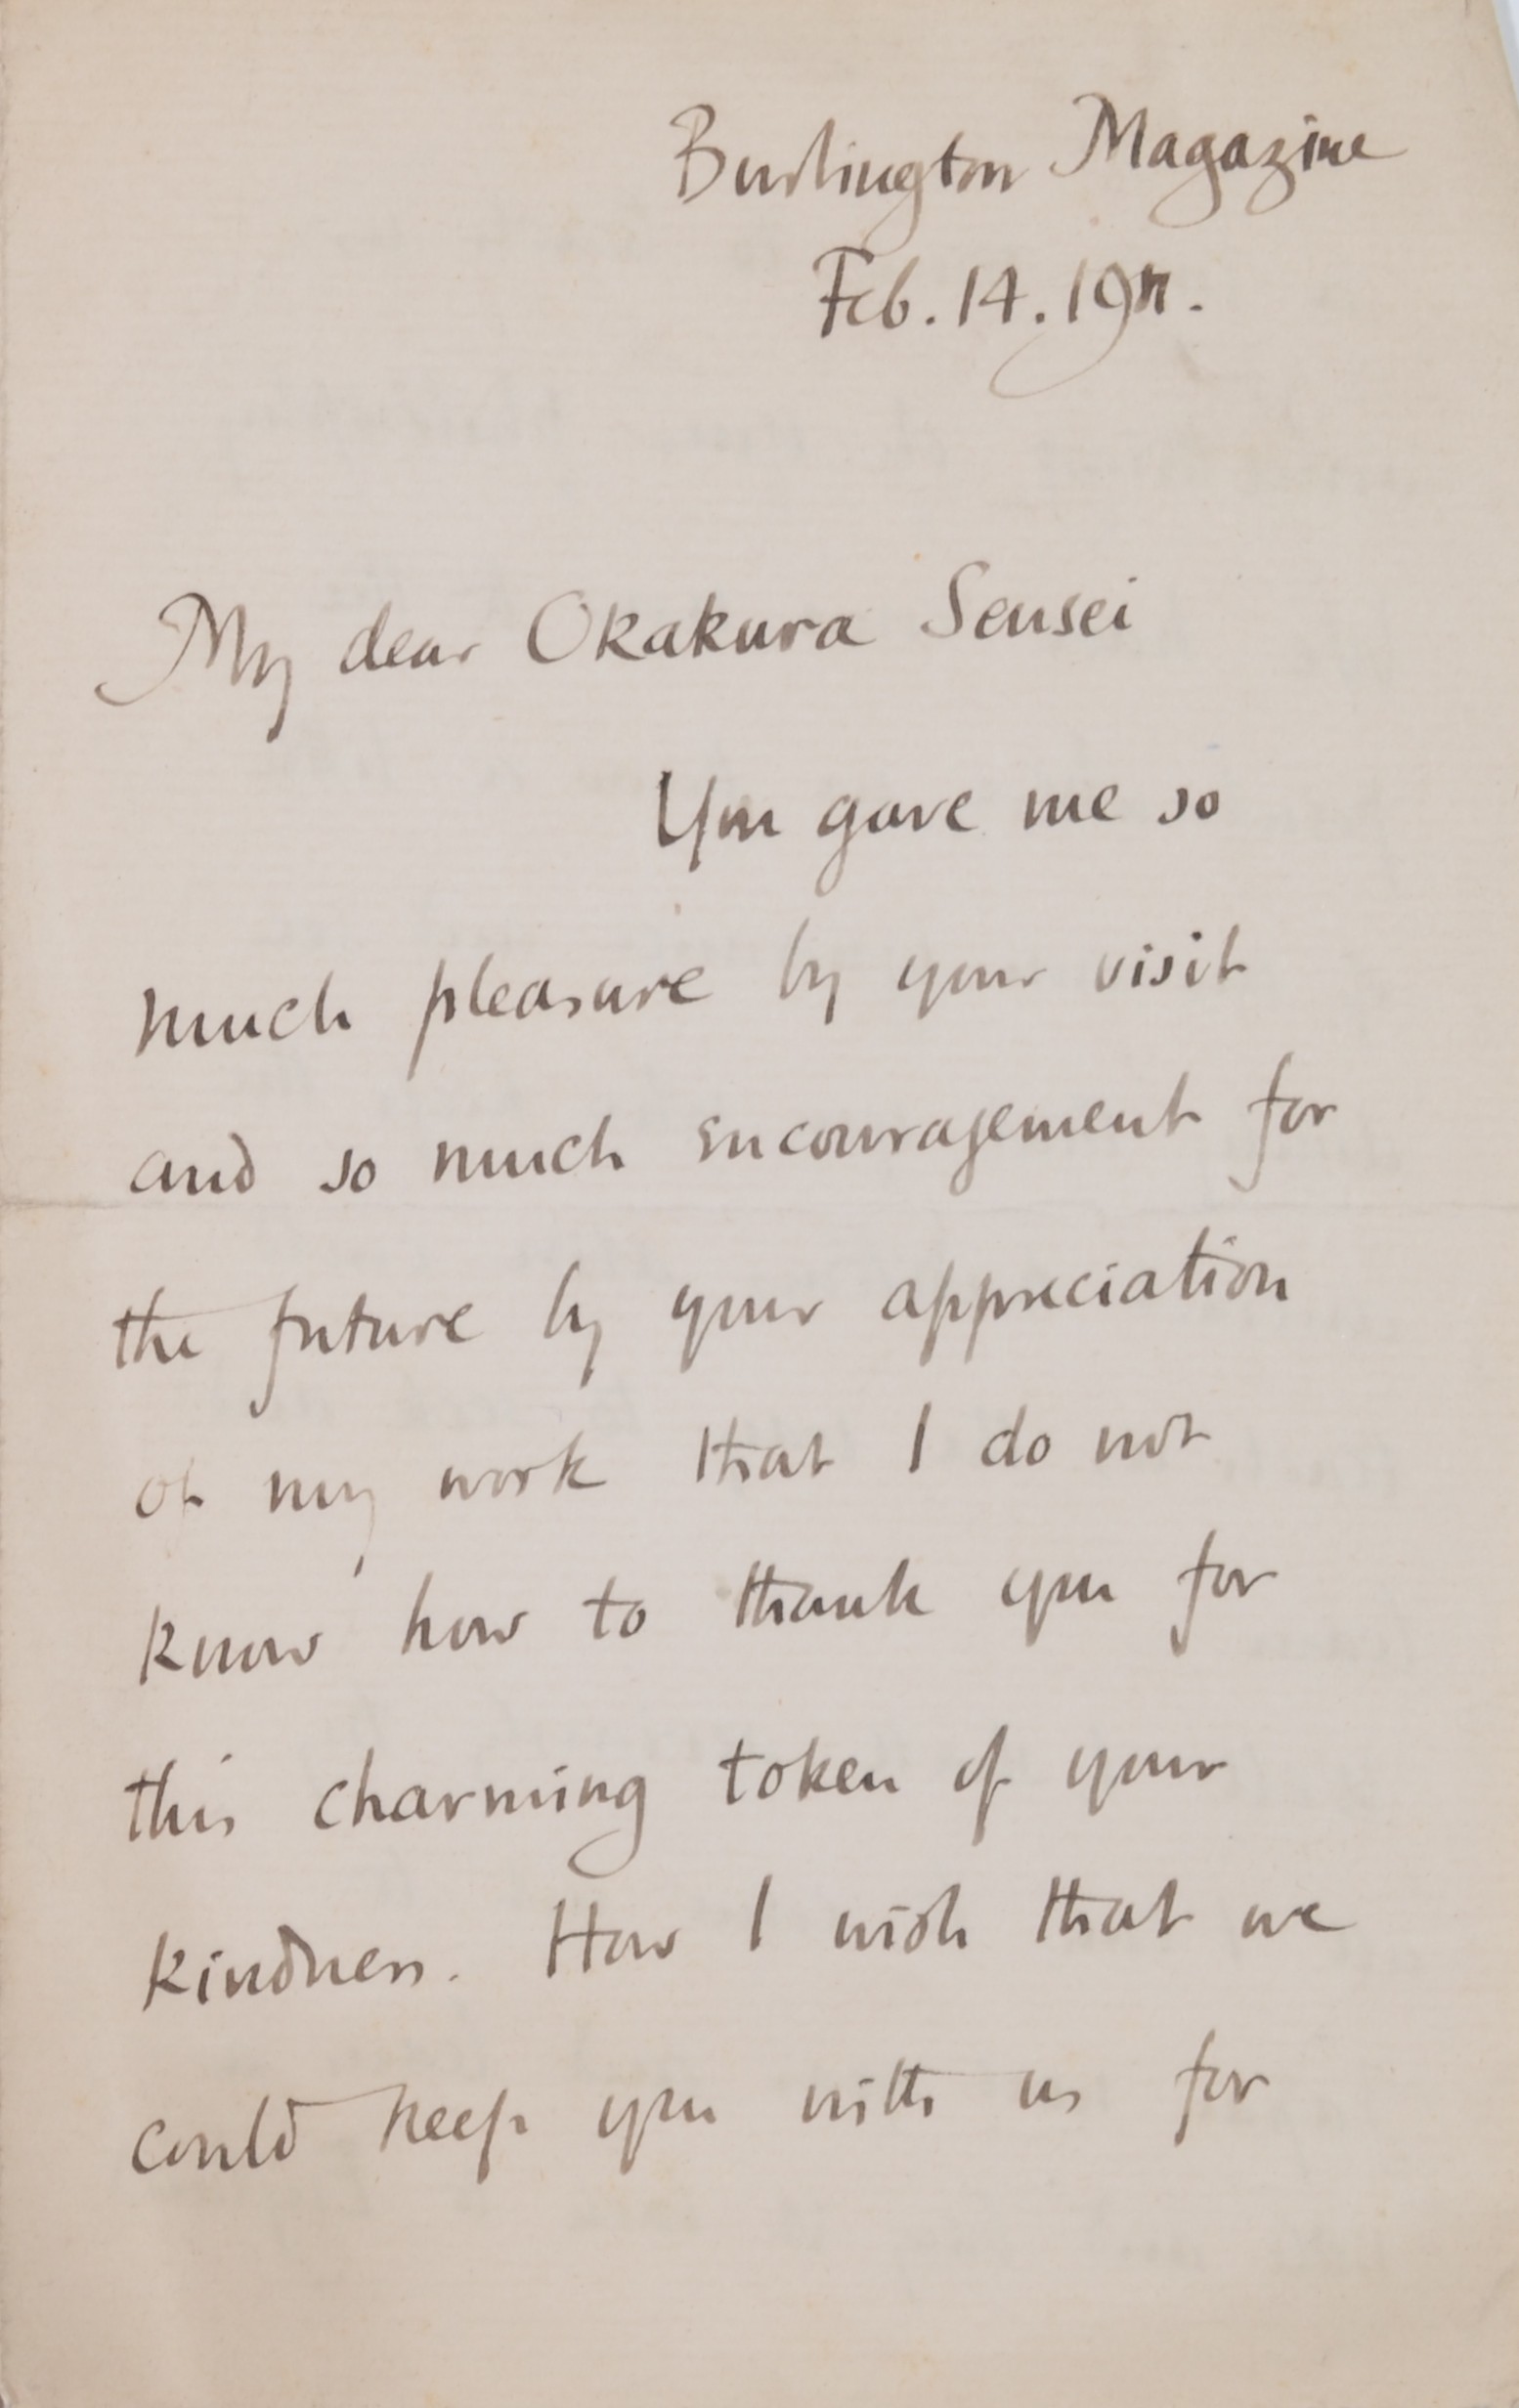 Burlington Magazine
Feb. 14. 1911.
My dear Okakura Sensei
You gave me so
much pleasure by your visit
and so much encouragement for
the future by your appreciation
of my work that I do not
know how to thank you for
this charming token of your
kindness. How I wish that we
could keep you with us for